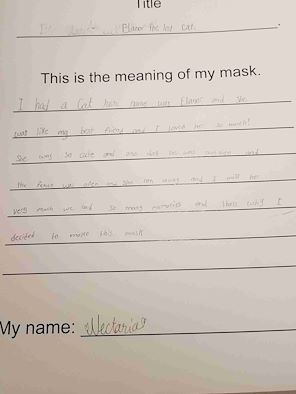 Title
Elanor the lost cat.
This is the meaning of my mask.
I had a Cat her name was Elanor and she
was like my best friend and I loved her so much!
She was so cute and one day she was outside and
the fence was open and she ran away and I miss her
very much we had so many memories and thats why I
decided to make this mask
My name: Nectaria